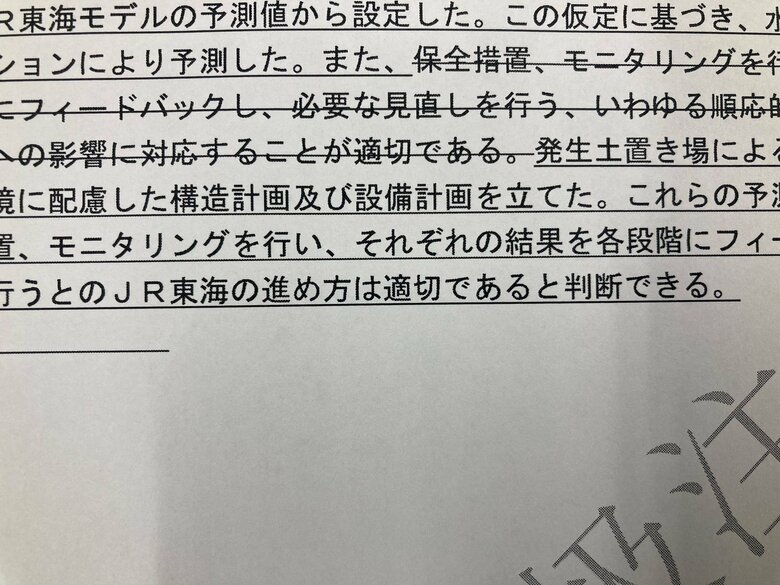 Ｒ東海モデルの予測値から設定した。この仮定に基づき、
ションにより予測した。また、保全措置、モニタリングを行
にフィードバックし、必要な見直しを行う、いわゆる順応的
への影響に対応することが適切である。発生土置き場による
境に配慮した構造計画及び設備計画を立てた。これらの予測
置、モニタリングを行い、それぞれの結果を各段階にフィー
行うとのＪＲ東海の進め方は適切であると判断できる。